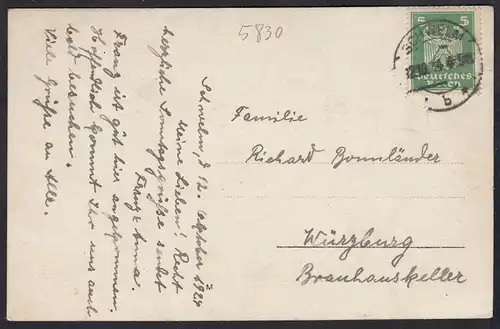 5830
Schwelm, d. 12. Oktober 1924
Meine Lieben! Recht
herzliche Sonntagsgrüße sendet
Franz + Anna.
Franz ist gut hier angekommen.
Hoffentlich kommt Ihr uns auch
bald besuchen.
Viele Grüße an Alle.
5
SCHWELM
Deutsches
Reich
b
Familie
Richard Bonnländer
Würzburg
Brauhauskeller